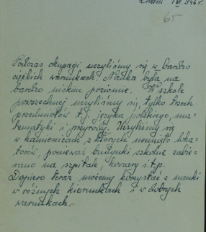 1946 r.
65
Podczas okupacji uczyliśmy się w bardzo
ciężkich warunkach. Nauka była na
bardzo niskim poziomie. W szkole
powszechnej uczyliśmy się tylko trzech
przedmiotów t.j. języka polskiego, ma-
tematyki i przyrody. Uczyliśmy się
w kamienicach, z których usunięto loka-
torów, ponieważ budynki szkolne zabie-
rano na szpitale, koszary i.t.p.
Dopiero teraz możemy korzystać z nauki
w różnych kierunkach i w dobrych
warunkach.